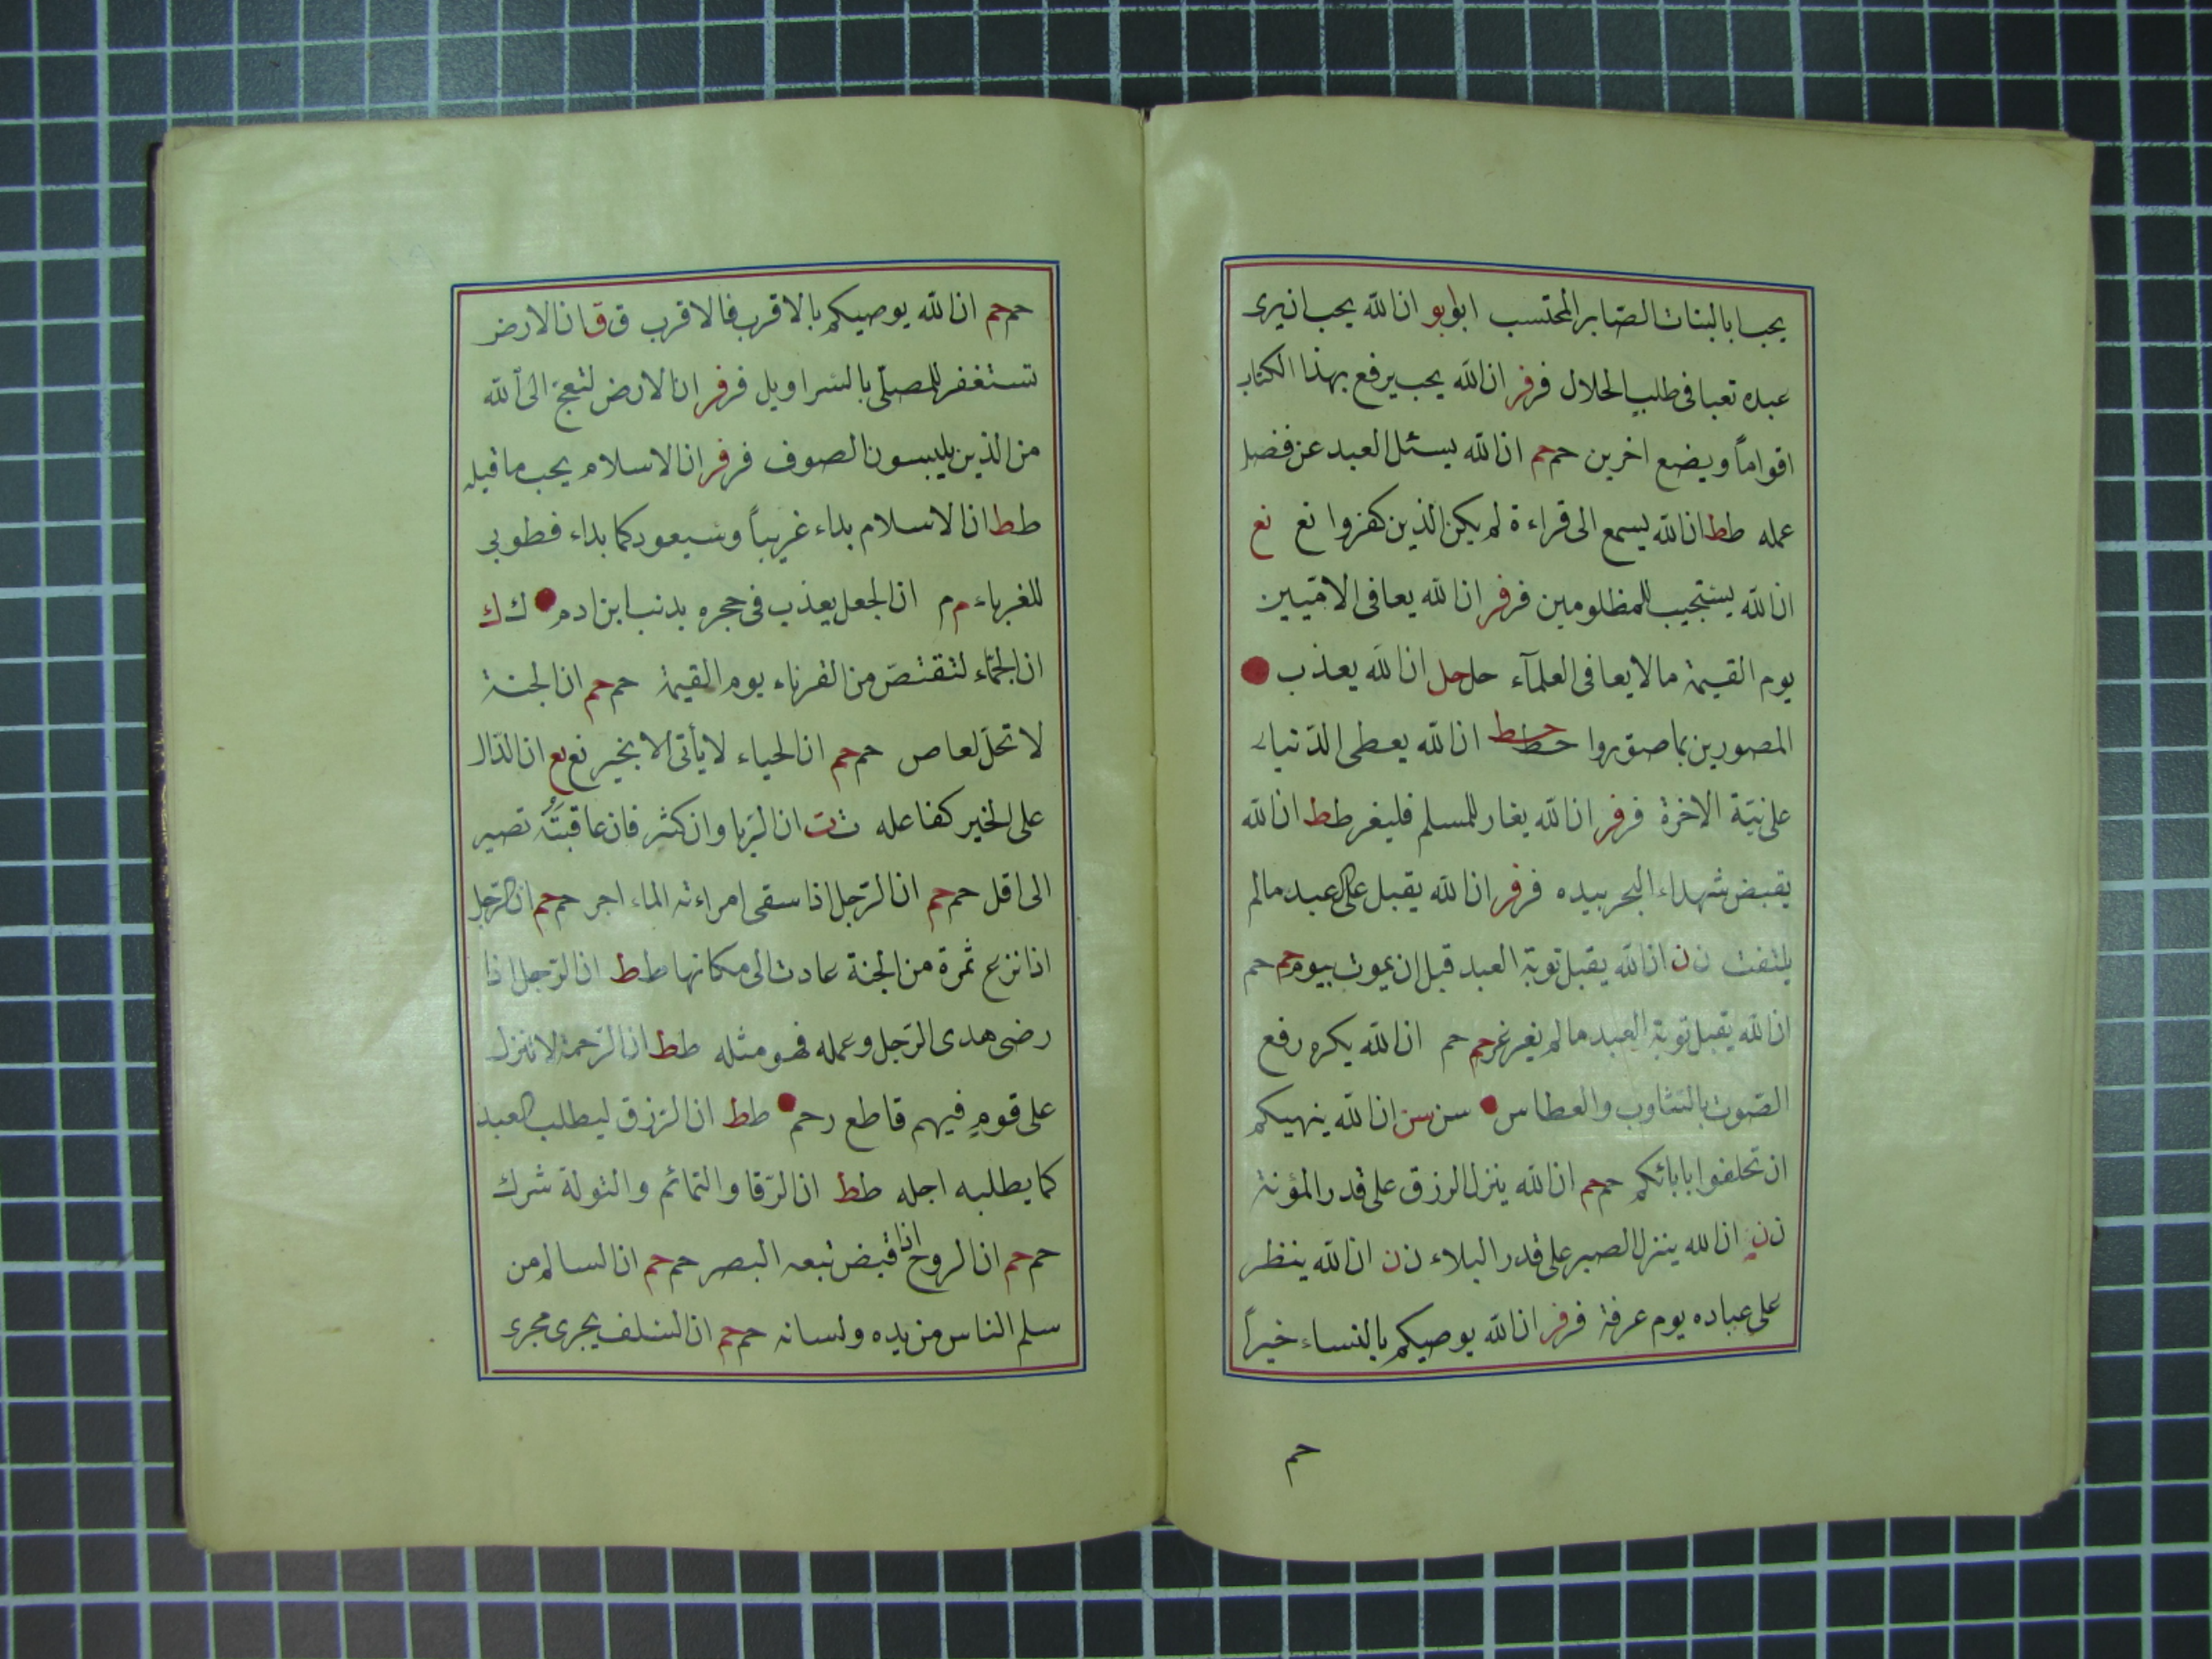 يحب ابا البنات الصابر المحتسب ابو ابو ان الله يحب ان يرى
عبده تعبا فى طلب الحلال فر فر ان الله يحب يرفع بهذا الكتاب
اقواماً ويضع اخرين حم حم ان الله يسئل العبد عن فضل
عمله ط ط ان الله ليسمع الى قراءة لم يكن الذين كفروا نع نع
ان الله يستجيب للمظلومين فر فر ان الله يعافى الاميين
يوم القيمة ما لا يعافى العلمآء حل حل ان الله يعذب
المصورين بما صوروا خط خط ان الله يعطى الدنيا
على نية الاخرة فر فر ان الله يغار للمسلم فليغر ط ط ان الله
يقبض شهداء البحر بيده فر فر ان الله يقبل على العبد مالم
يلتفت ن ن ان الله يقبل توبة العبد قبل ان يموت بيوم حم حم
ان الله يقبل توبة العبد مالم يغرغر حم حم ان الله يكره رفع
الصوت بالتثاوب والعطاس سن سن ان الله ينهيكم
ان تحلفوا بابائكم حم حم ان الله ينزل الرزق على قدر المؤنة
ن ن ان الله ينزل الصبر على قدر البلاء ن ن ان الله ينظر
على عباده يوم عرفة فر فر ان الله يوصيكم بالنساء خيراً
حم
حم حم ان الله يوصيكم بالاقرب فالاقرب ق ق ان الارض
تستغفر للمصلى بالسراويل فر فر ان الارض لتعج الى الله
من الذين يلبسون الصوف فر فر ان الاسلام يجب ما قبله
ط ط ان الاسلام بداء غريباً وسيعود كما بداء فطوبى
للغرباء م م ان الجعل يعذب فى حجره بدنب ابن ادم ك ك
ان الجماء لتقتص من القرناء يوم القيمة حم حم ان الجنة
لا تحل لعاص حم حم ان الحياء لا يأتى الا بخير نع نع ان الدال
على الخير كفاعله ت ت ان الربا وان كثر فان عاقبته تصير
الى اقل حم حم ان الرجل اذا سقى امراءته الماء اجر حم حم ان الرجل
اذا نزع ثمرة من الجنة عادت الى مكانها ط ط ان الرجل اذا
رضى هدى الرجل وعمله فهو مثله ط ط ان الرحمة لا تنزل
على قوم فيهم قاطع رحم ط ط ان الرزق ليطلب العبد
كما يطلبه اجله ط ط ان الرقا والتمائم والتولة شرك
حم حم ان الروح اذا قبض تبعه البصر حم حم ان السالم من
سلم الناس من يده ولسانه حم حم ان السلف يجرى مجرى